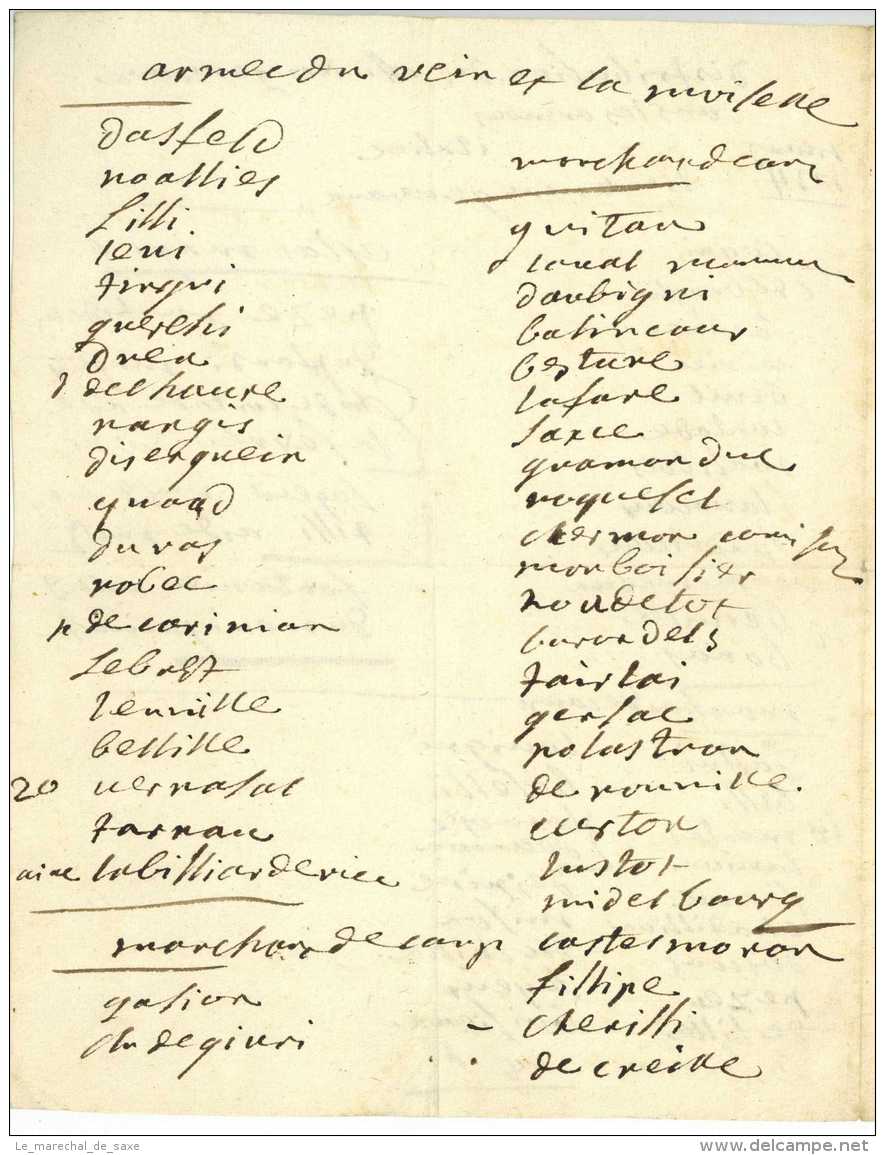 armee du rein et la moiselle
dasfeld
noallies
filli
leui
tingri
querchi
dreu
p delhaure
nangis
diserquein
quaad
duras
robec
p de carinian
lebret
leuville
bellille
20 uernasal
tarnau
aine labilliarderiee
marchaux de camp
gasion
ch degiuri
marchaux de cam
guitau
laual
daubigni
balincour
besture
lafare
saxce
guamondue
roquesel
chermon comiser
monboisier
houdetot
baron dels
tairlai
gersac
polastron
de nouville.
cuerton
lustot
midelbourg
castesmoron
fillipe
- cherilli
. de creille
Le_marechal_de_saxe
delcampe.net